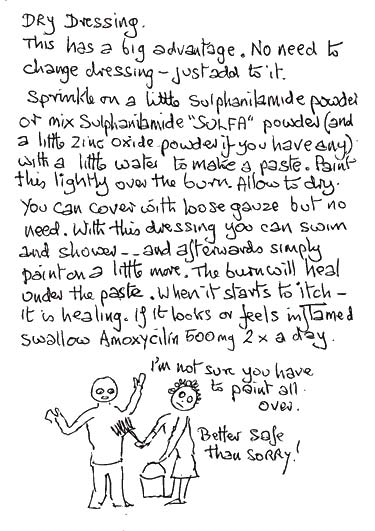 DRY Dressing.
This has a big advantage. No need to
change dressing - just add to it.
Sprinkle on a little Sulphanilamide powder
or mix Sulphanilamide "SULFA" powder (and
a little zinc oxide powder if you have any)
with a little water to make a paste. Paint
this lightly over the burn. Allow to dry.
You can cover with loose gauze but no
need. With this dressing you can swim
and shower -- and afterwards simply
paint on a little more. The burn will heal
under the paste. When it starts to itch -
it is healing. If it looks or feels inflamed
swallow Amoxycilin 500mg 2 x a day.
I'm not sure you have
to paint all
over.
Better safe
than SORRY!